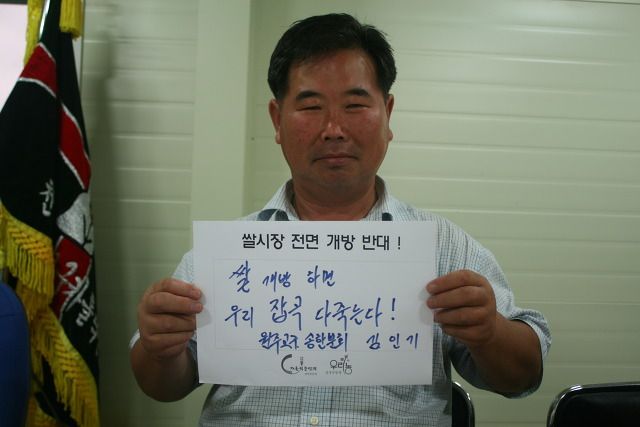 쌀시장 전면 개방 반대 !
쌀 개방 하면
우리 잡곡 다죽는다!
원주교구 송한분회 김인기
우리농